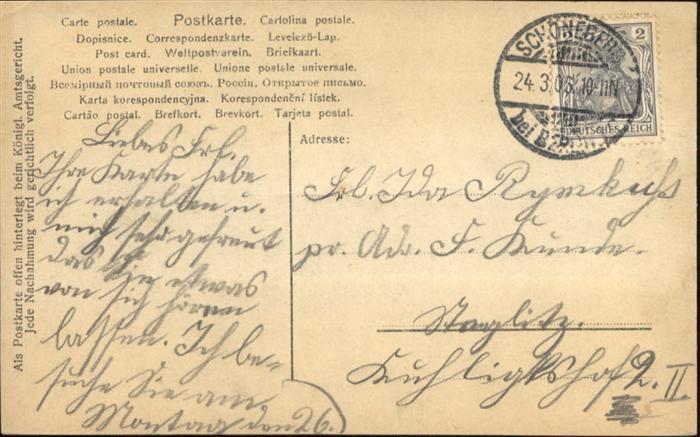 Carte postale. Postkarte. Cartolina postale.
Dopisnice. Correspondenzkarte. Levelező-Lap.
Post card. Weltpostverein. Briefkaart.
Union postale universelle. Unione postale universale.
Всемірный почтовый союзъ. Россія. Открытое письмо.
Karta korespondencyjna. Korespondenční lístek.
Cartão postal. Brefkort. Brevkort. Tarjeta postal.
Als Postkarte offen hinterlegt beim Königl. Amtsgericht.
Jede Nachahmung wird gerichtlich verfolgt.
Liebes Frl.
Ihre Karte habe
ich erhalten u.
mich sehr gefreut
das Sie etwas
von sich hören
lassen. Ich be-
suche Sie am
Montag den 26.
SCHÖNEBERG
24.3.06. 10-11N
bei BERLIN
2
DEUTSCHES REICH
Adresse:
Frl. Ida
pr. Adr. F. Kunde.
Steglitz.
Kuhligkshof 2. II.